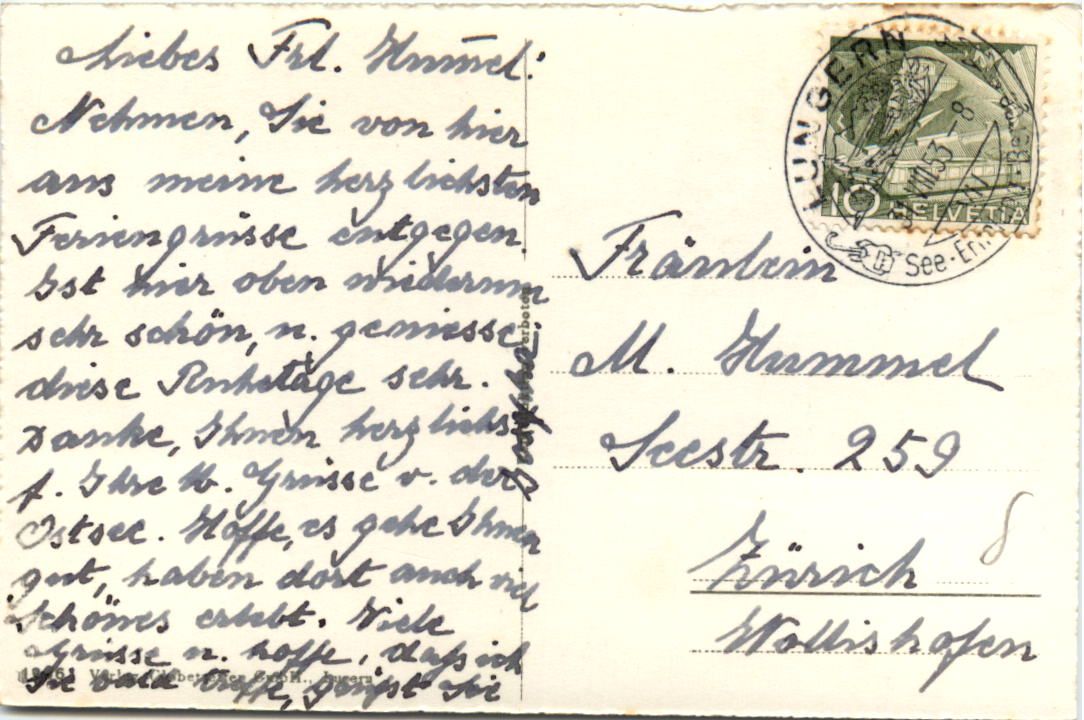 Liebes Frl. Hummel!
Nehmen, Sie von hier
aus meine herzlichsten
Feriengrüsse entgegen.
Ist hier oben wiederum
sehr schön, u. geniesse
diese Ruhetage sehr.
Danke, Ihnen herzlichst
f. Ihre lb. Grüsse v. der
Ostsee. Hoffe, es gehe Ihnen
gut, haben dort auch viel
Schönes erlebt. Viele
Grüsse u. hoffe, dass ich
Sie bald treffe, grüsst Sie
Verlag Globetrotter GmbH., Luzern
Fräulein
M. Hummel
Seestr. 259
Zürich
Wollishofen
LUNGERN
VIII.53 - 8
See
10 HELVETIA